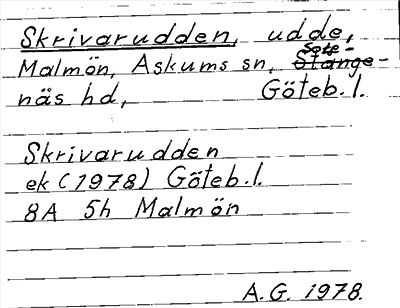 Skrivarudden, udde,
Sote-
Malmön, Askums sn, Stånge-
näs hd, Göteb. l.
Skrivarudden
ek (1978) Göteb. l.
8A 5h Malmön
A. G. 1978.